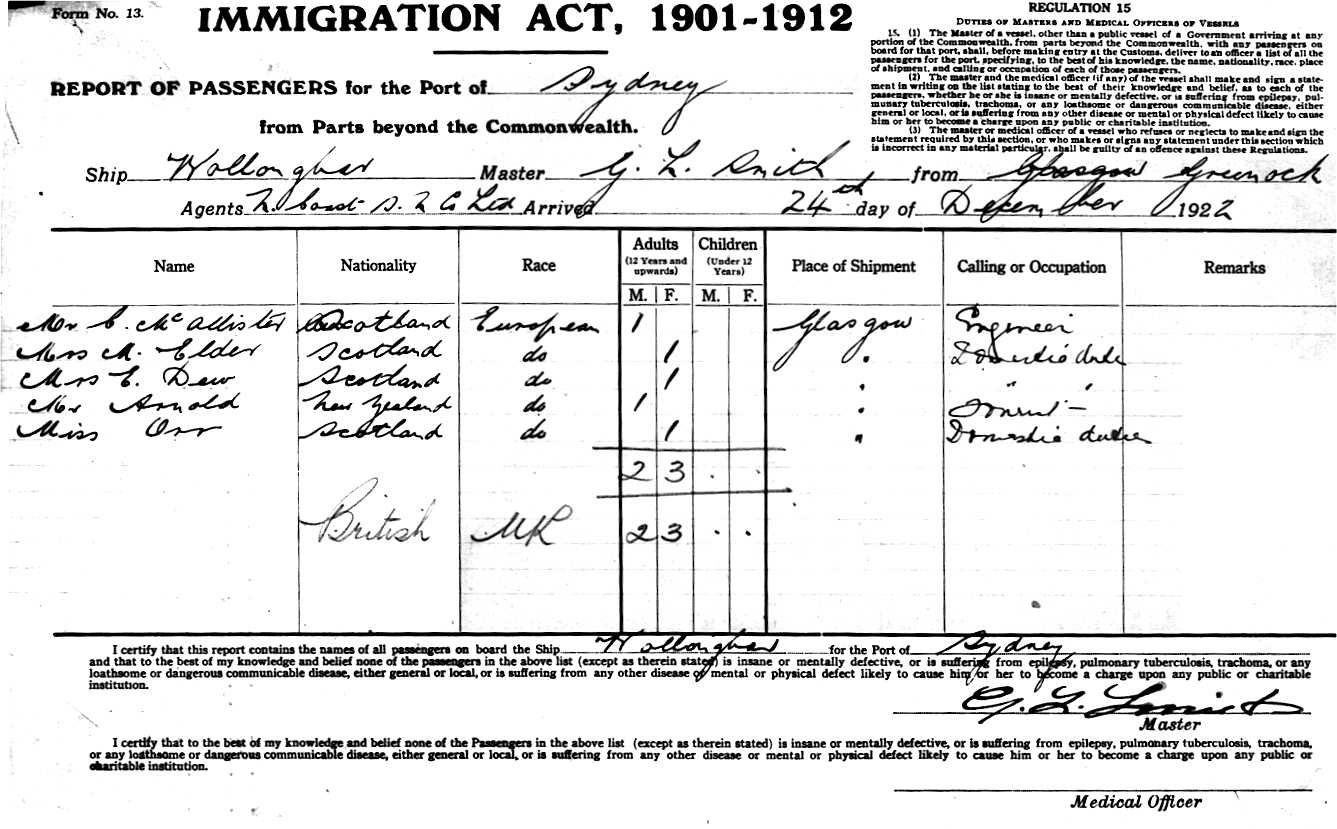 Form No. 13.
IMMIGRATION ACT, 1901-1912
REGULATION 15
DUTIES OF MASTERS AND MEDICAL OFFICERS OF VESSELS
15. (1) The Master of a vessel, other than a public vessel of a Government arriving at any
portion of the Commonwealth, from parts beyond the Commonwealth, with any passengers on
board for that port, shall, before making entry at the Customs, deliver to an officer a list of all the
passengers for the port, specifying, to the best of his knowledge, the name, nationality, race, place
of shipment, and calling or occupation of each of those passengers.
(2) The master and the medical officer (if any) of the vessel shall make and sign a state-
ment in writing on the list stating to the best of their knowledge and belief, as to each of the
passengers, whether he or she is insane or mentally defective, or is suffering from epilepsy, pul-
munary tuberculosis, trachoma, or any loathsome or dangerous communicable disease, either
general or local, or is suffering from any other disease or mental or physical defect likely to cause
him or her to become a charge upon any public or charitable institution.
(3) The master or medical officer of a vessel who refuses or neglects to make and sign the
statement required by this section, or who makes or signs any statement under this section which
is incorrect in any material particular, shall be guilty of an offence against these Regulations.
REPORT OF PASSENGERS for the Port of Sydney
from Parts beyond the Commonwealth.
Ship Wollongbar Master G. L. Smith, from Glasgow Greenock
Agents N. Coast S. N Co Ltd Arrived 24th day of December 1922
Name Nationality Race Adults (12 Years and upwards) Children (Under 12 Years) Place of Shipment Calling or Occupation Remarks
M. F. M. F.
Mr C. McAllister Scotland European 1 Glasgow Engineer
Mrs M. Elder Scotland do 1 " Domestic dutie
Mrs E. Dew Scotland do 1 " " "
Mr Arnold New Zealand do 1 "
Miss Orr Scotland do 1 " Domestic duties
2 3 . .
British UK 2 3 . .
I certify that this report contains the names of all passengers on board the Ship Wollongbar for the Port of Sydney
and that to the best of my knowledge and belief none of the passengers in the above list (except as therein stated) is insane or mentally defective, or is suffering from epilepsy, pulmonary tuberculosis, trachoma, or any
loathsome or dangerous communicable disease, either general or local, or is suffering from any other disease or mental or physical defect likely to cause him or her to become a charge upon any public or charitable
institution.
G. L. Smith
Master
I certify that to the best of my knowledge and belief none of the Passengers in the above list (except as therein stated) is insane or mentally defective, or is suffering from epilepsy, pulmonary tuberculosis, trachoma,
or any loathsome or dangerous communicable disease, either general or local, or is suffering from any other disease or mental or physical defect likely to cause him or her to become a charge upon any public or
charitable institution.
Medical Officer